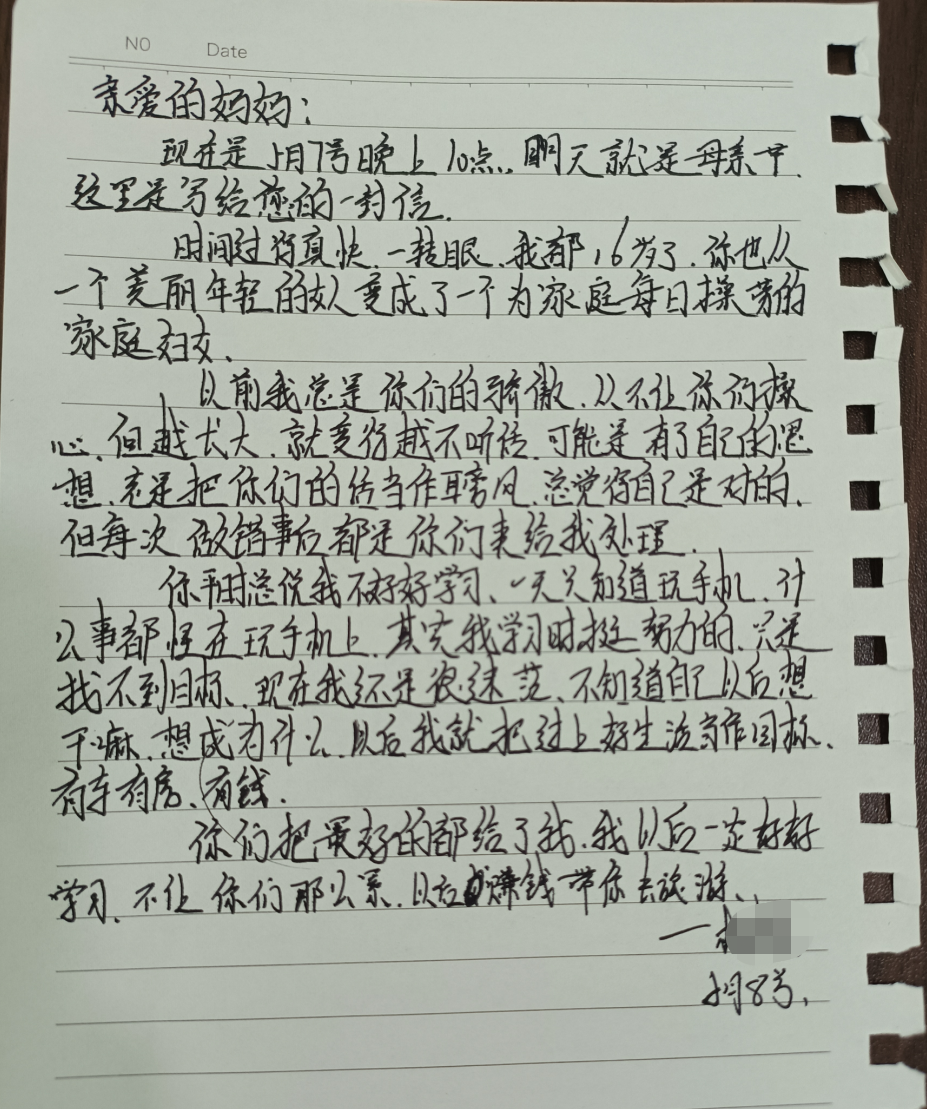 NO Date
亲爱的妈妈:
现在是5月7号晚上10点,明天就是母亲节
这里是写给您的一封信.
时间过得真快.一转眼.我都16岁了.你也从
一个美丽年轻的女人变成了一个为家庭每日操劳的
家庭妇女.
以前我总是你们的骄傲.从不让你们操
心.但越长大.就变得越不听话.可能是有了自己的思
想.老是把你们的话当作耳旁风.总觉得自己是对的.
但每次做错事后都是你们来给我处理.
你平时总说我不好好学习、一天只知道玩手机.什
么事都怪在玩手机上.其实我学习时挺努力的.只是
找不到目标、现在我还是很迷茫、不知道自己以后想
干嘛.想成为什么.以后我就把过上好生活当作目标、
有车有房、有钱.
你们把最好的都给了我.我以后一定好好
学习、不让你们那么累.以后赚钱带你去旅游、
一
5月8号.